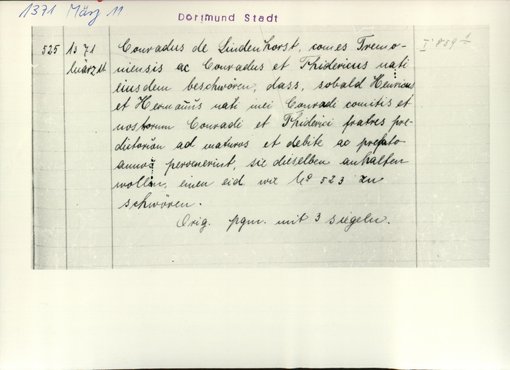 1371 März 11
Dortmund Stadt
525 1371 Conradus de Lindenhorst, comes Tremo-
März 11 niensis ac Conradus et Thidericus nati
eiusdem beschwören, dass, sobald Henricus
et Hermañus nati mei Conradi comitis et
nostorum Conradi et Thiderici fratres pre-
dictorum ad maturos et debite ac prefato
annos pervenerint, sie dieselben anhalten
wollen, einen eid wie No 523 zu
schwören.
Orig. pgm. mit 3 siegeln.
I 859